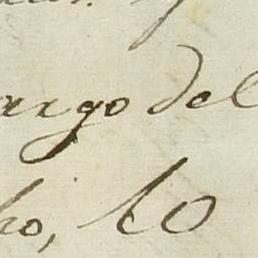 argo del
ho, lo